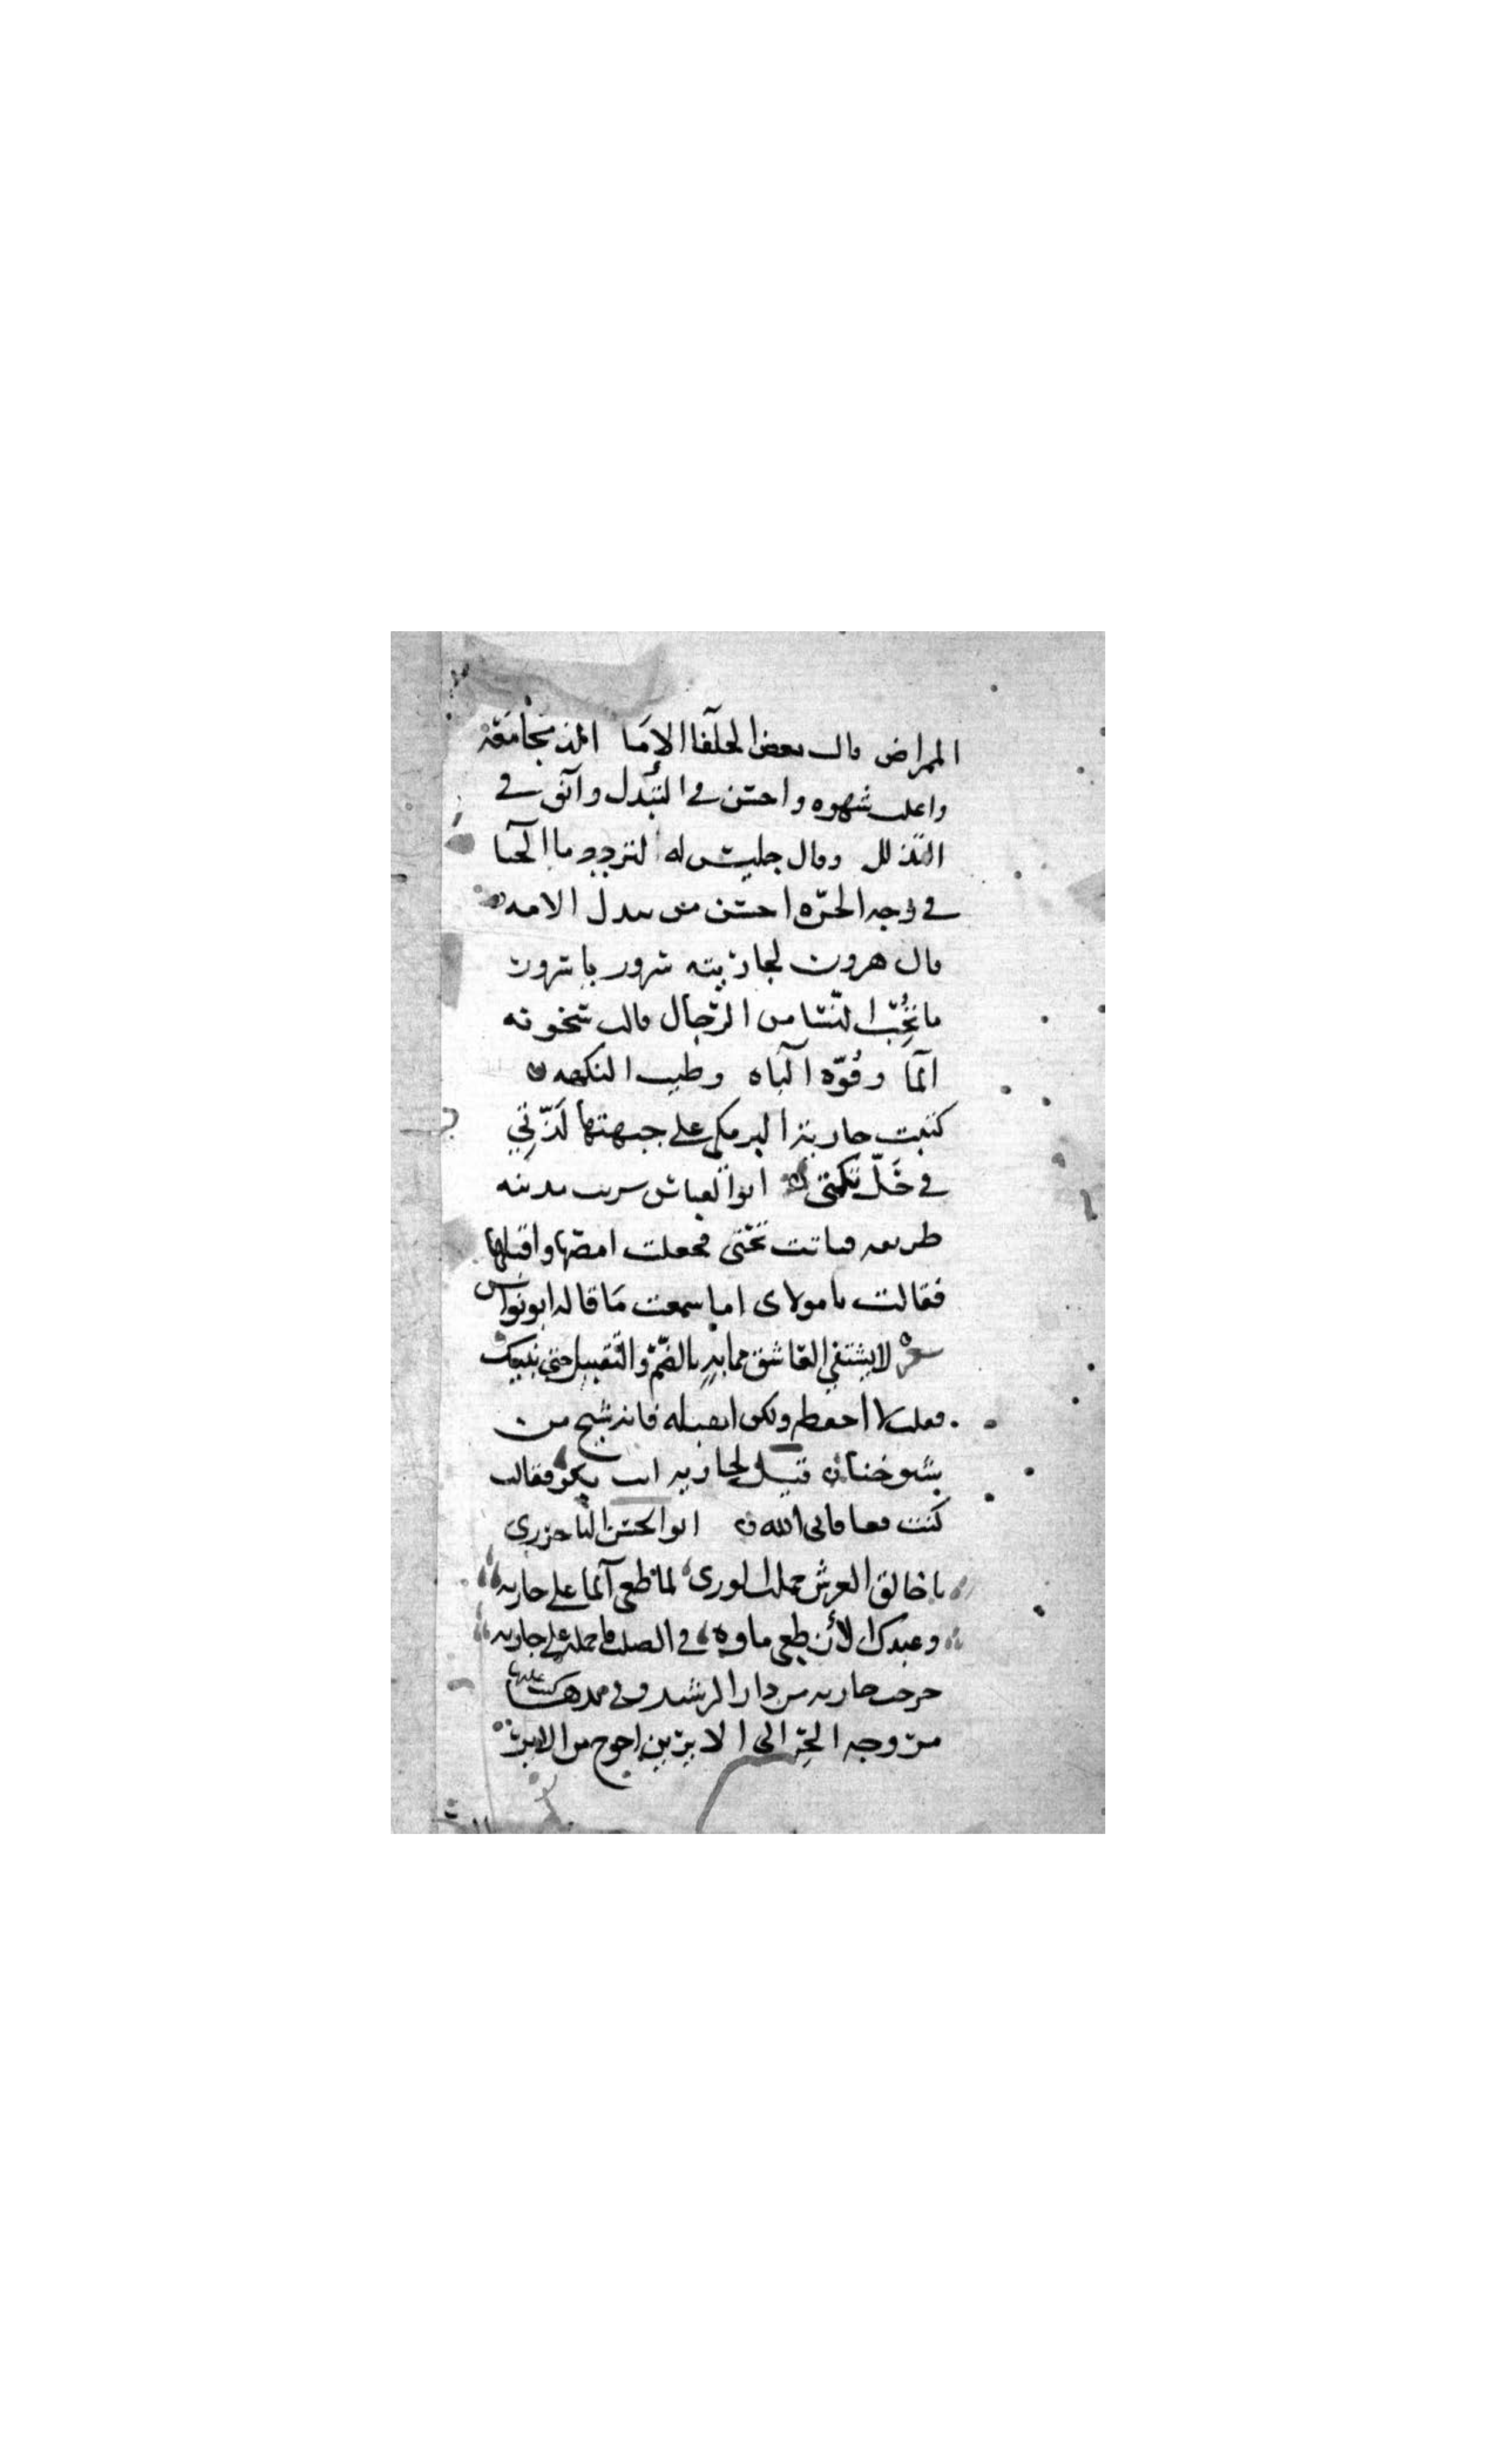 المراض قال بعض الخلفا الإمَا الذ مجَامَعَة
واغلب شهوه واحسن في التبدل وآنق في
التذلل وقال جليس له لتردد ما الحيا
في وجه الحرّه احسن من تبدل الامه
قال هرون لجاريته سرور يا سرور
ما تُحِبّ النّسا من الرّجال قالت سخونه
المآ وقُوّه الباه وطيب النكهه
كتبت جارية البرمكي على جبهتها لَذّتي
في حَلّ تكّتي ابو العباس سريت مدينه
طريفه فباتت تحتى فجعلت امصّها واقبلها
فقالت يا مولاى اما سمعت مَا قاله ابو نواس
شعر لا يشتفي العَاشق مما به بالضمّ والتقبيل حتى ينيك
فقلت لا احفظه ولكن اقبله فانه شيخ من
شيوخنا قيل لجاريه انت بكر فقالت
كنت فعافانى الله ابو الحسن الباخزرى
يا خالق العرش حملت الورى لما طغى المآ على جاريه
وعبدك الان طغى ماوه في الصلب فاحمله على جاريه
خرجت جاريه من دار الرشيد وفى يدها كتب عليها
مروحه الحِر الى الايرين احوج من الاير